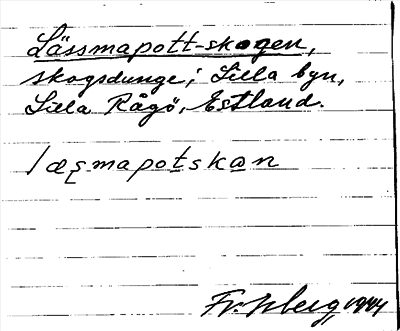 Lässmapott-skogen,
skogsdunge i Lilla byn,
Lilla Rågö, Estland.
læşmapotskan
1944